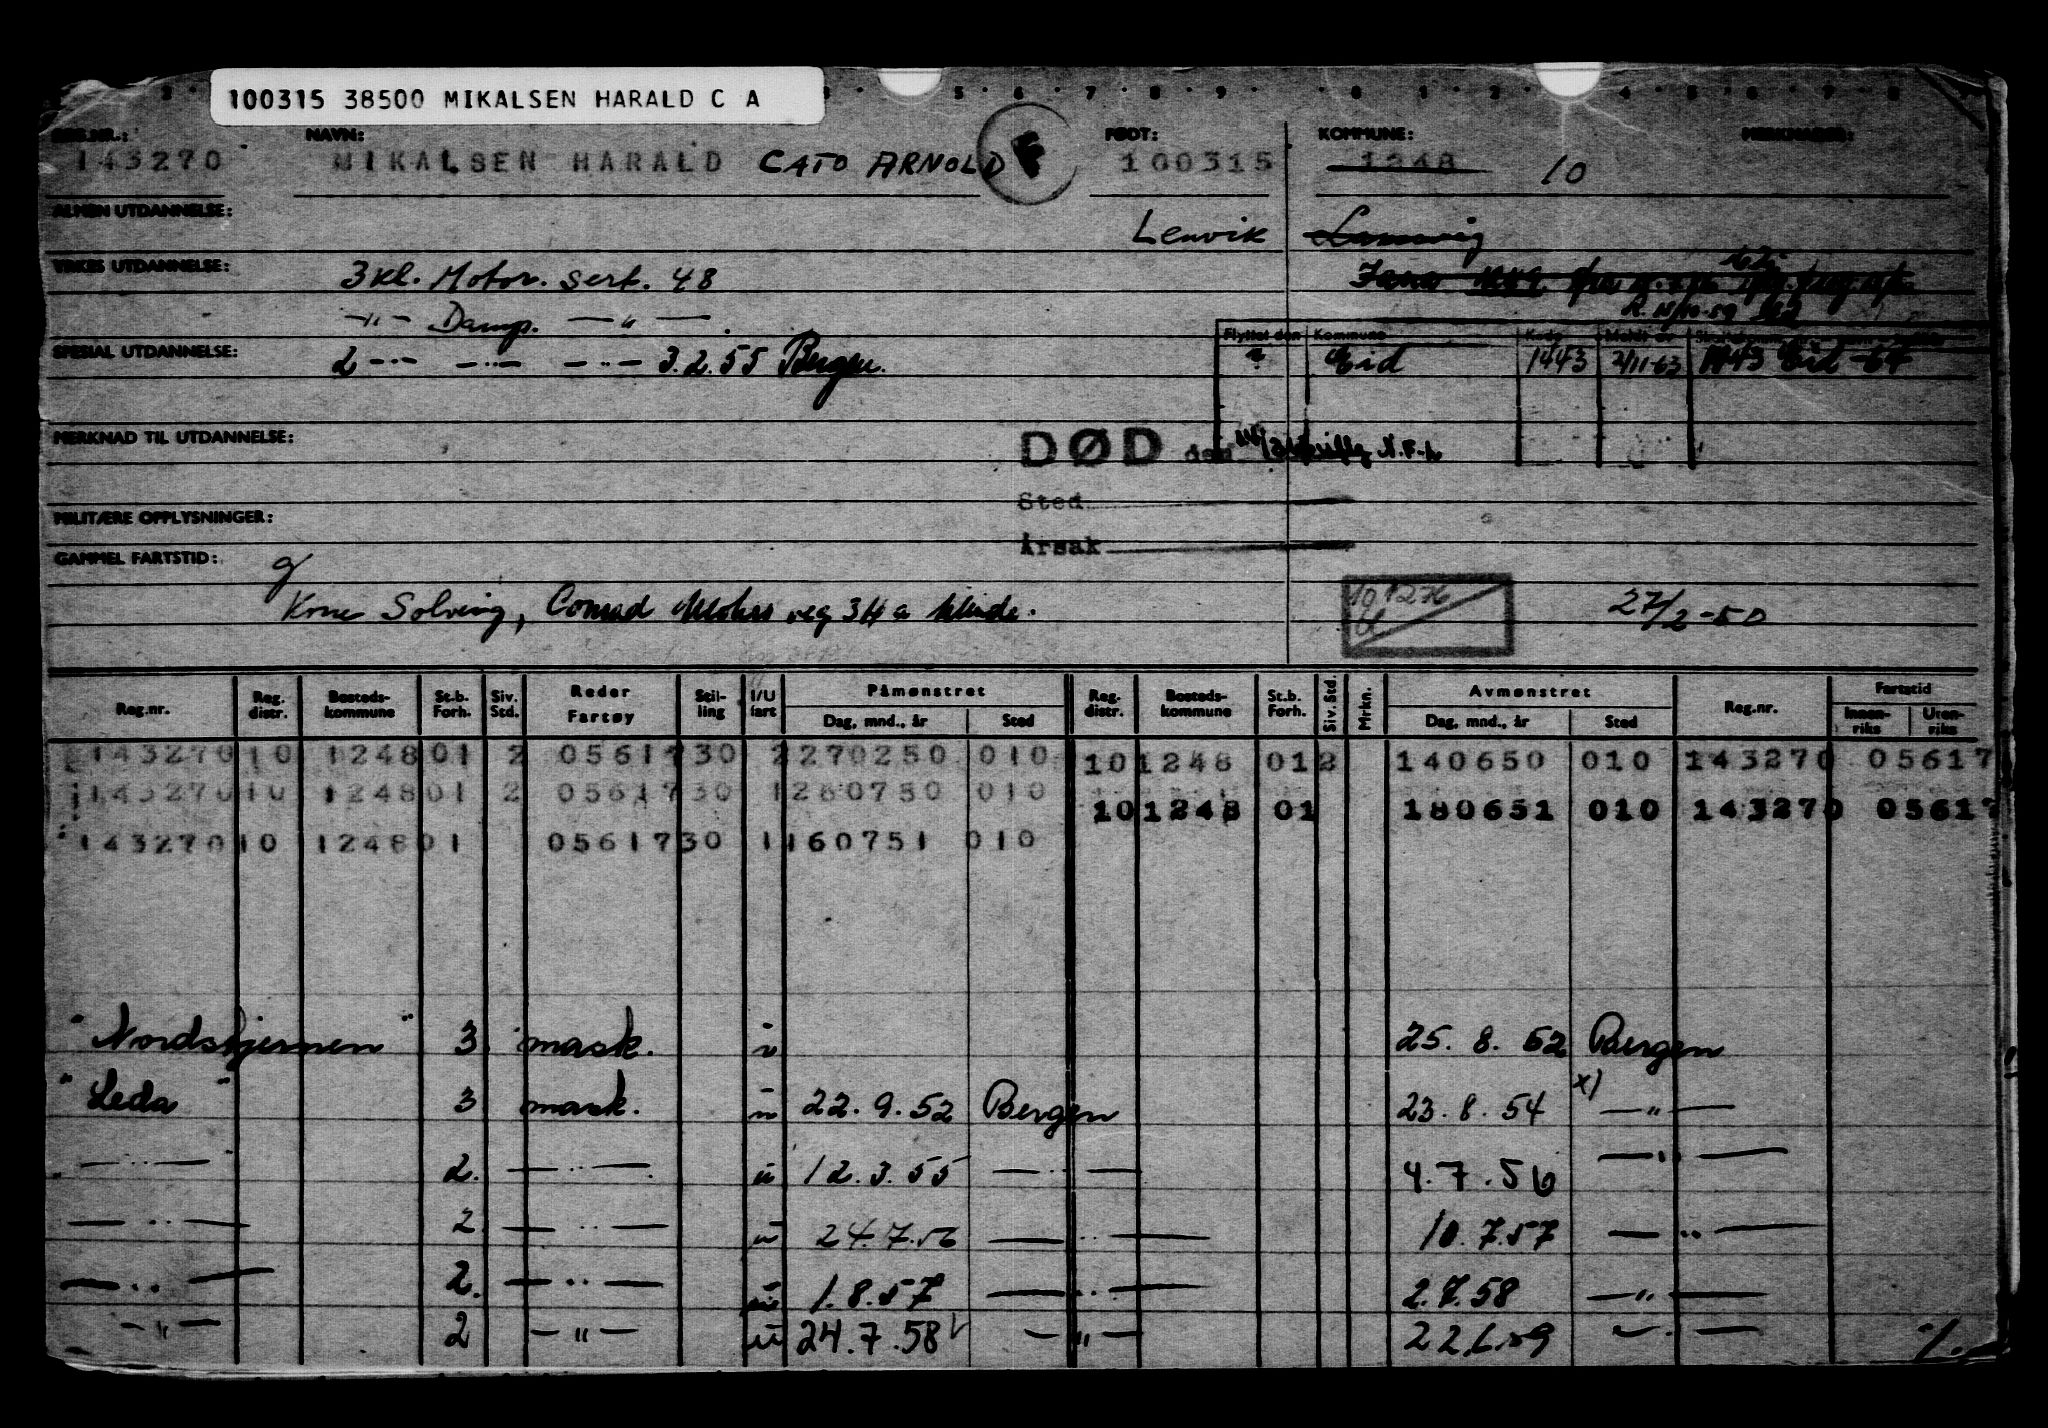 100315 38500 MIKALSEN HARALD C A
REG.NR.: NAVN: FØDT: KOMMUNE: MERKNADER:
143270 MIKALSEN HARALD CATO ARNOLD 100315 1248 10
ALMEN UTDANNELSE: Lenvik
YRKES UTDANNELSE: 3 kl. Motor. sert. 48
—"— Damp. —"—.
Flyttet den Kommune
SPESIAL UTDANNELSE: 2 —"— —"— —"— 3.2.55 Bergen. ? Eid 1443 2/11-63 1443 Eid -64
MERKNAD TIL UTDANNELSE: DØD den
Sted
MILITÆRE OPPLYSNINGER:
Årsak
GAMMEL FARTSTID: g
Kone Solveig, Conrad Mohrs veg 34 a 27/2-50
Reg.nr. Reg. distr. Bosteds- kommune St.b. Forh. Siv. Std. Reder Fartøy Stil- ling I/U fart Påmønstret Dag, mnd., år Sted Reg. distr. Bosteds- kommune St.b. Forh. Siv. Std. Mrkn. Avmønstret Dag, mnd., år Sted Reg.nr. Fartstid Innen- riks Uten- riks
143270 10 1248 01 2 05617 30 2 270250 010 10 1248 01 2 140650 010 143270 05617
143270 10 1248 01 2 05617 30 1 280750 010 10 1248 01 180651 010 143270 05617
143270 10 1248 01 05617 30 1 160751 010
"Nordstjernen" 3 mask. u 25.8.52 Bergen
"Leda" 3 mask. u 22.9.52 Bergen 23.8.54 x) —"—
—"— 2. —"— u 12.3.55 —"— 4.7.56 —"—
—"— 2. —"— u 24.7.56 —"— 10.7.57 —"—
—"— 2. —"— u 1.8.57 —"— 2.7.58 —"—
—"— 2 —"— u 24.7.58 —"— —"—